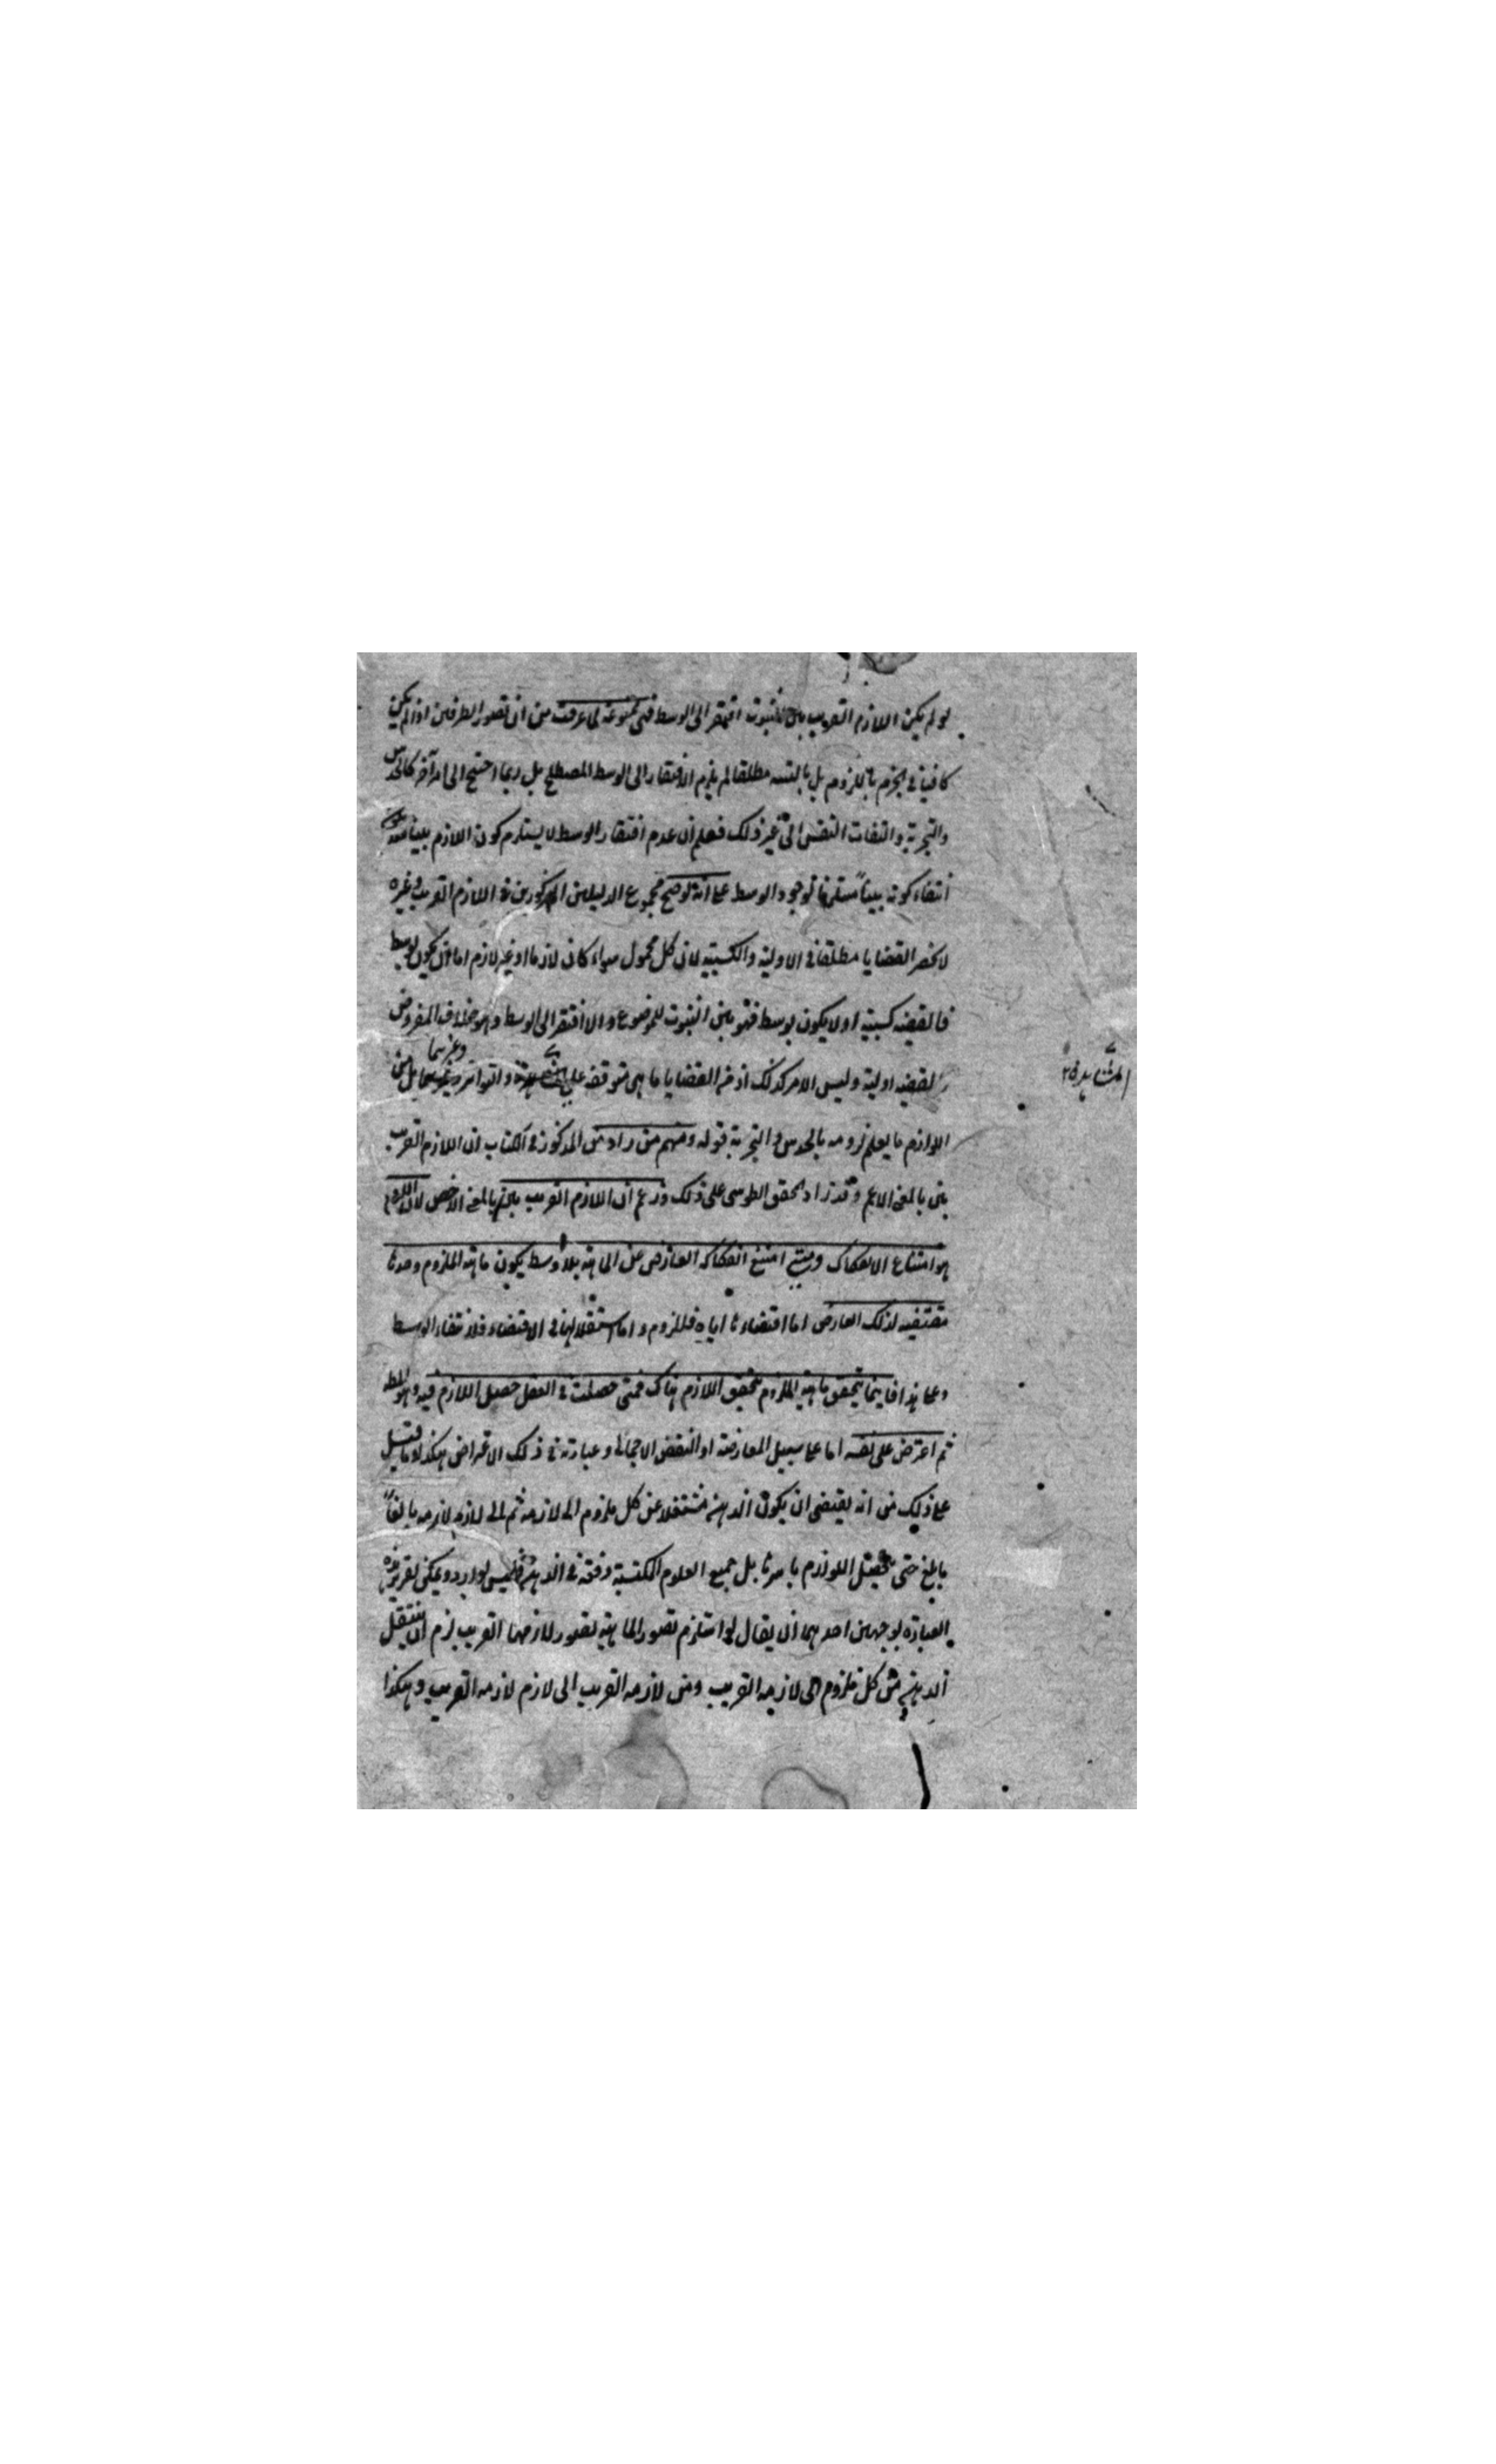 لو لم يكن اللازم القريب بين الثبوت افتقر الى الوسط فهى ممنوعة لما عرفت من ان تصور الطرفين اذا لم يكن
كافيا فى الجزم باللزوم بل بالنسبة مطلقا لم يلزم الافتقار الى الوسط المصطلح بل ربما احتيج الى امر آخر كالحدس
والتجربة والتفات النفس الى غير ذلك فعلم ان عدم افتقار الوسط لا يستلزم كون اللازم بينا
انتفاء كونه بينا مستلزما لوجود الوسط على انه لو صح مجموع الدليلين المذكورين فى اللازم القريب وغيره
لانحصر القضايا مطلقا فى الاولية والكسبية لان كل محمول سواء كان لازما او غير لازم اما ان يكون بوسط
فالقضية كسبية او لا يكون بوسط فهو بين الثبوت للموضوع والا افتقر الى الوسط وهو خلاف المفروض
فالقضية اولية وليس الامر كذلك اذ من القضايا ما هى متوقفة على والتواتر وغيرهما بل من
المشاهدة
اللوازم ما يعلم لزومه بالحدس والتجربة قوله ومنهم من زاد من المذكور فى الكتاب ان اللازم القريب
بين بالمعنى الاعم وقد زاد المحقق الطوسى على ذلك وزعم ان اللازم القريب بين بالمعنى الاخص لان اللزوم
هو امتناع الانفكاك ومتى امتنع انفكاك العارض عن الماهية بلا وسط يكون ماهية الملزوم وحدها
مقتضية لذلك العارض اما اقتضاءها اياه فللزوم واما استقلالها فى الاقتضاء فلانتفاء الوسط
وعلى هذا فاينما يتحقق ماهية الملزوم يتحقق اللازم هناك فمتى حصلت فى العقل حصل اللازم فيه وهو المط
ثم اعترض على نفسه اما على سبيل المعارضة او النقض الاجمالى وعبارته فى ذلك الاعتراض هكذا لا ما قيل
على ذلك من انه يقتضى ان يكون الذهن منتقلا عن كل ملزوم الى لازمه ثم الى لازم لازمه بالغا
ما بلغ حتى تحصل اللوازم باسرها بل جميع العلوم المكتسبة دفعة فى الذهن فليس بوارد ويمكن تقرير هذه
العبارة بوجهين احدهما ان يقال لو استلزم تصور الماهية تصور لازمها القريب لزم ان ينتقل
الذهن من كل ملزوم الى لازمه القريب ومن لازمه القريب الى لازم لازمه القريب وهكذا